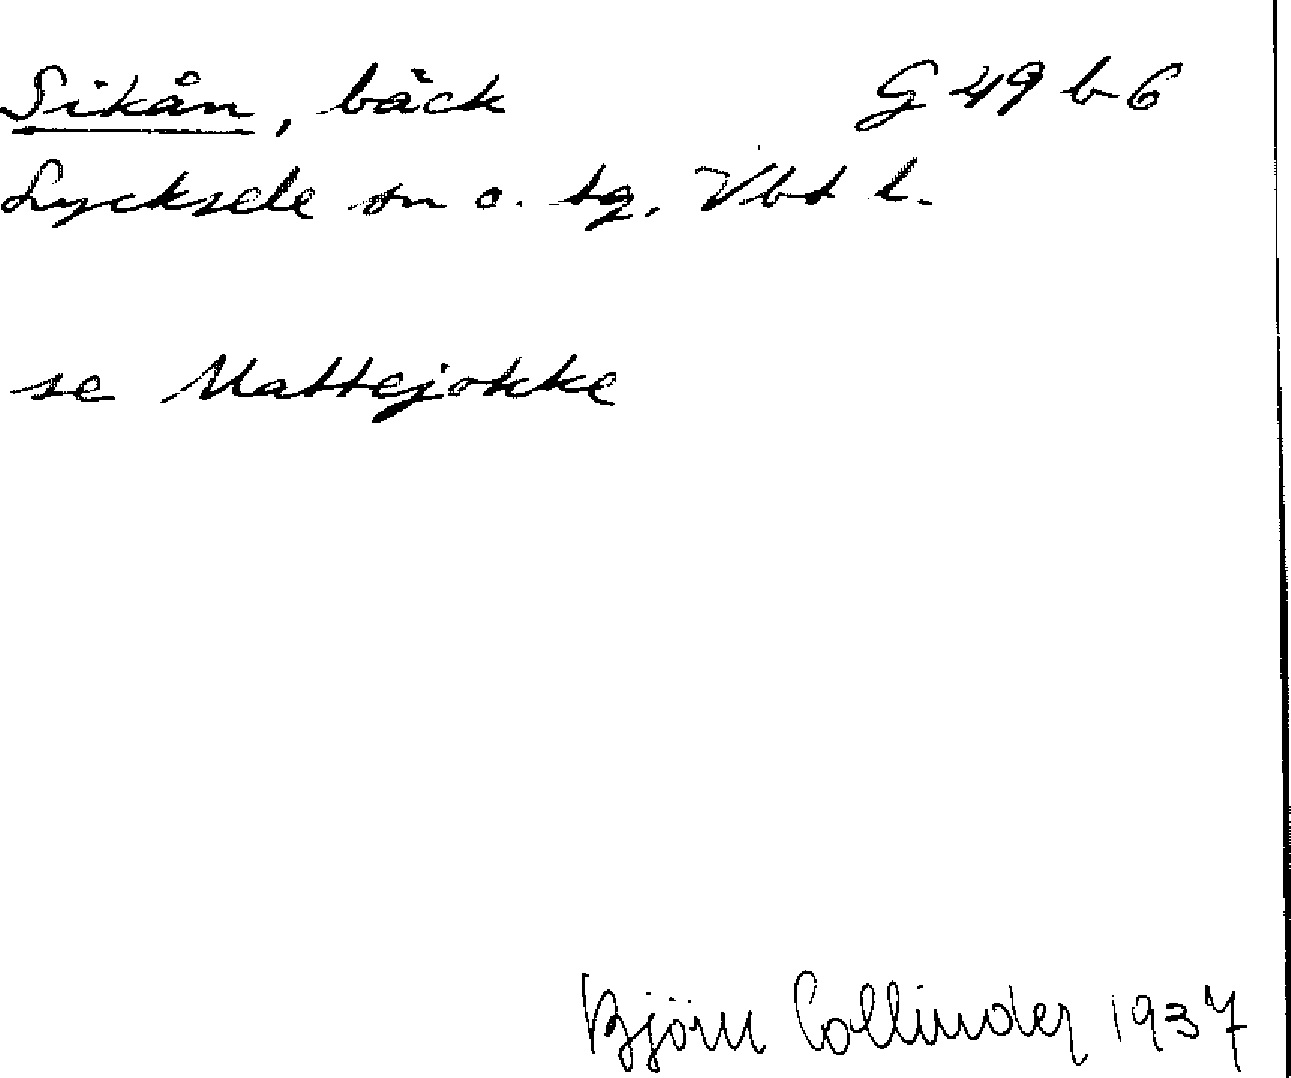 Sikån, bäck G 49 b 6
Lycksele sn o. tg. Vbt l.
se Mattejokke
Björn Collinder 1937